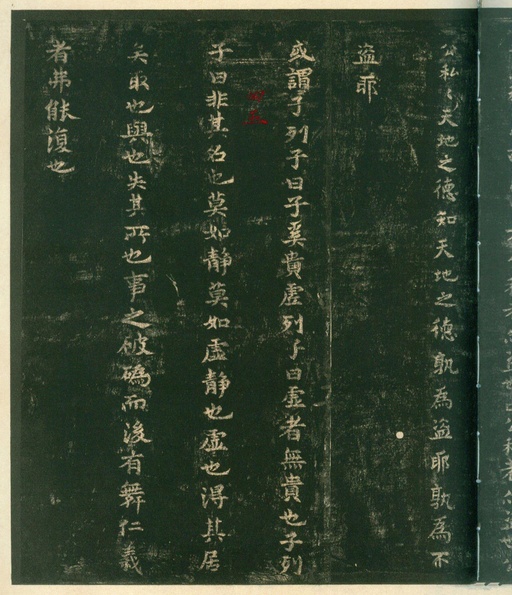 公私〻天地之德知天地之德孰為盜耶孰為不
盜耶
或謂子列子曰子奚貴虛列子曰虛者無貴也子列
子曰非其名也莫如靜莫如虛靜也虛也得其居
矣取也與也失其所也事之破䃣而後有舞仁義
者弗能復也